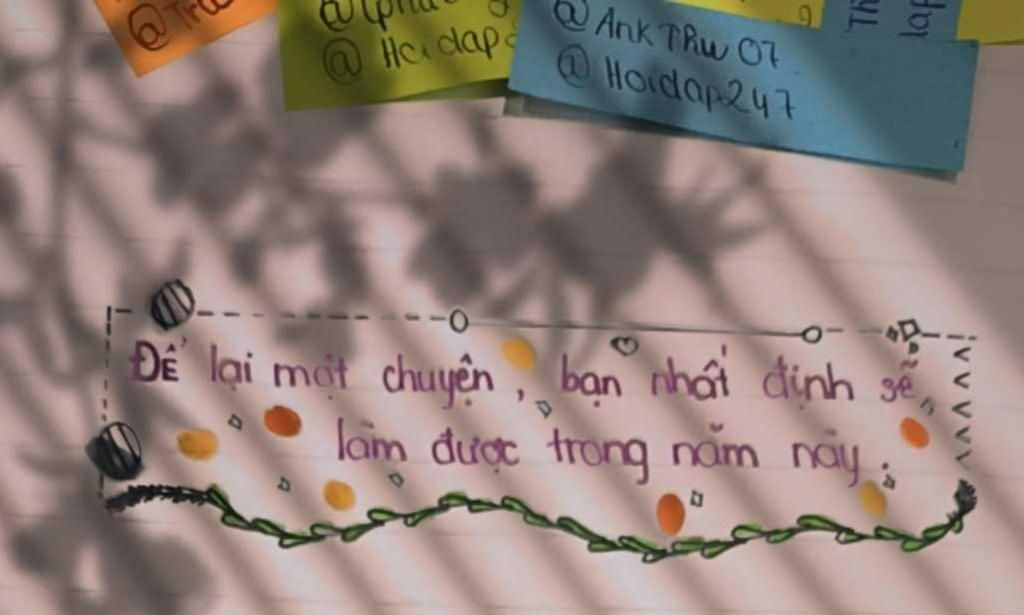 @Tru
@ Hoidap
@ AnkTRw 07
@ Hoidap247
Để lại một chuyện, bạn nhất định sẽ
làm được trong năm này.